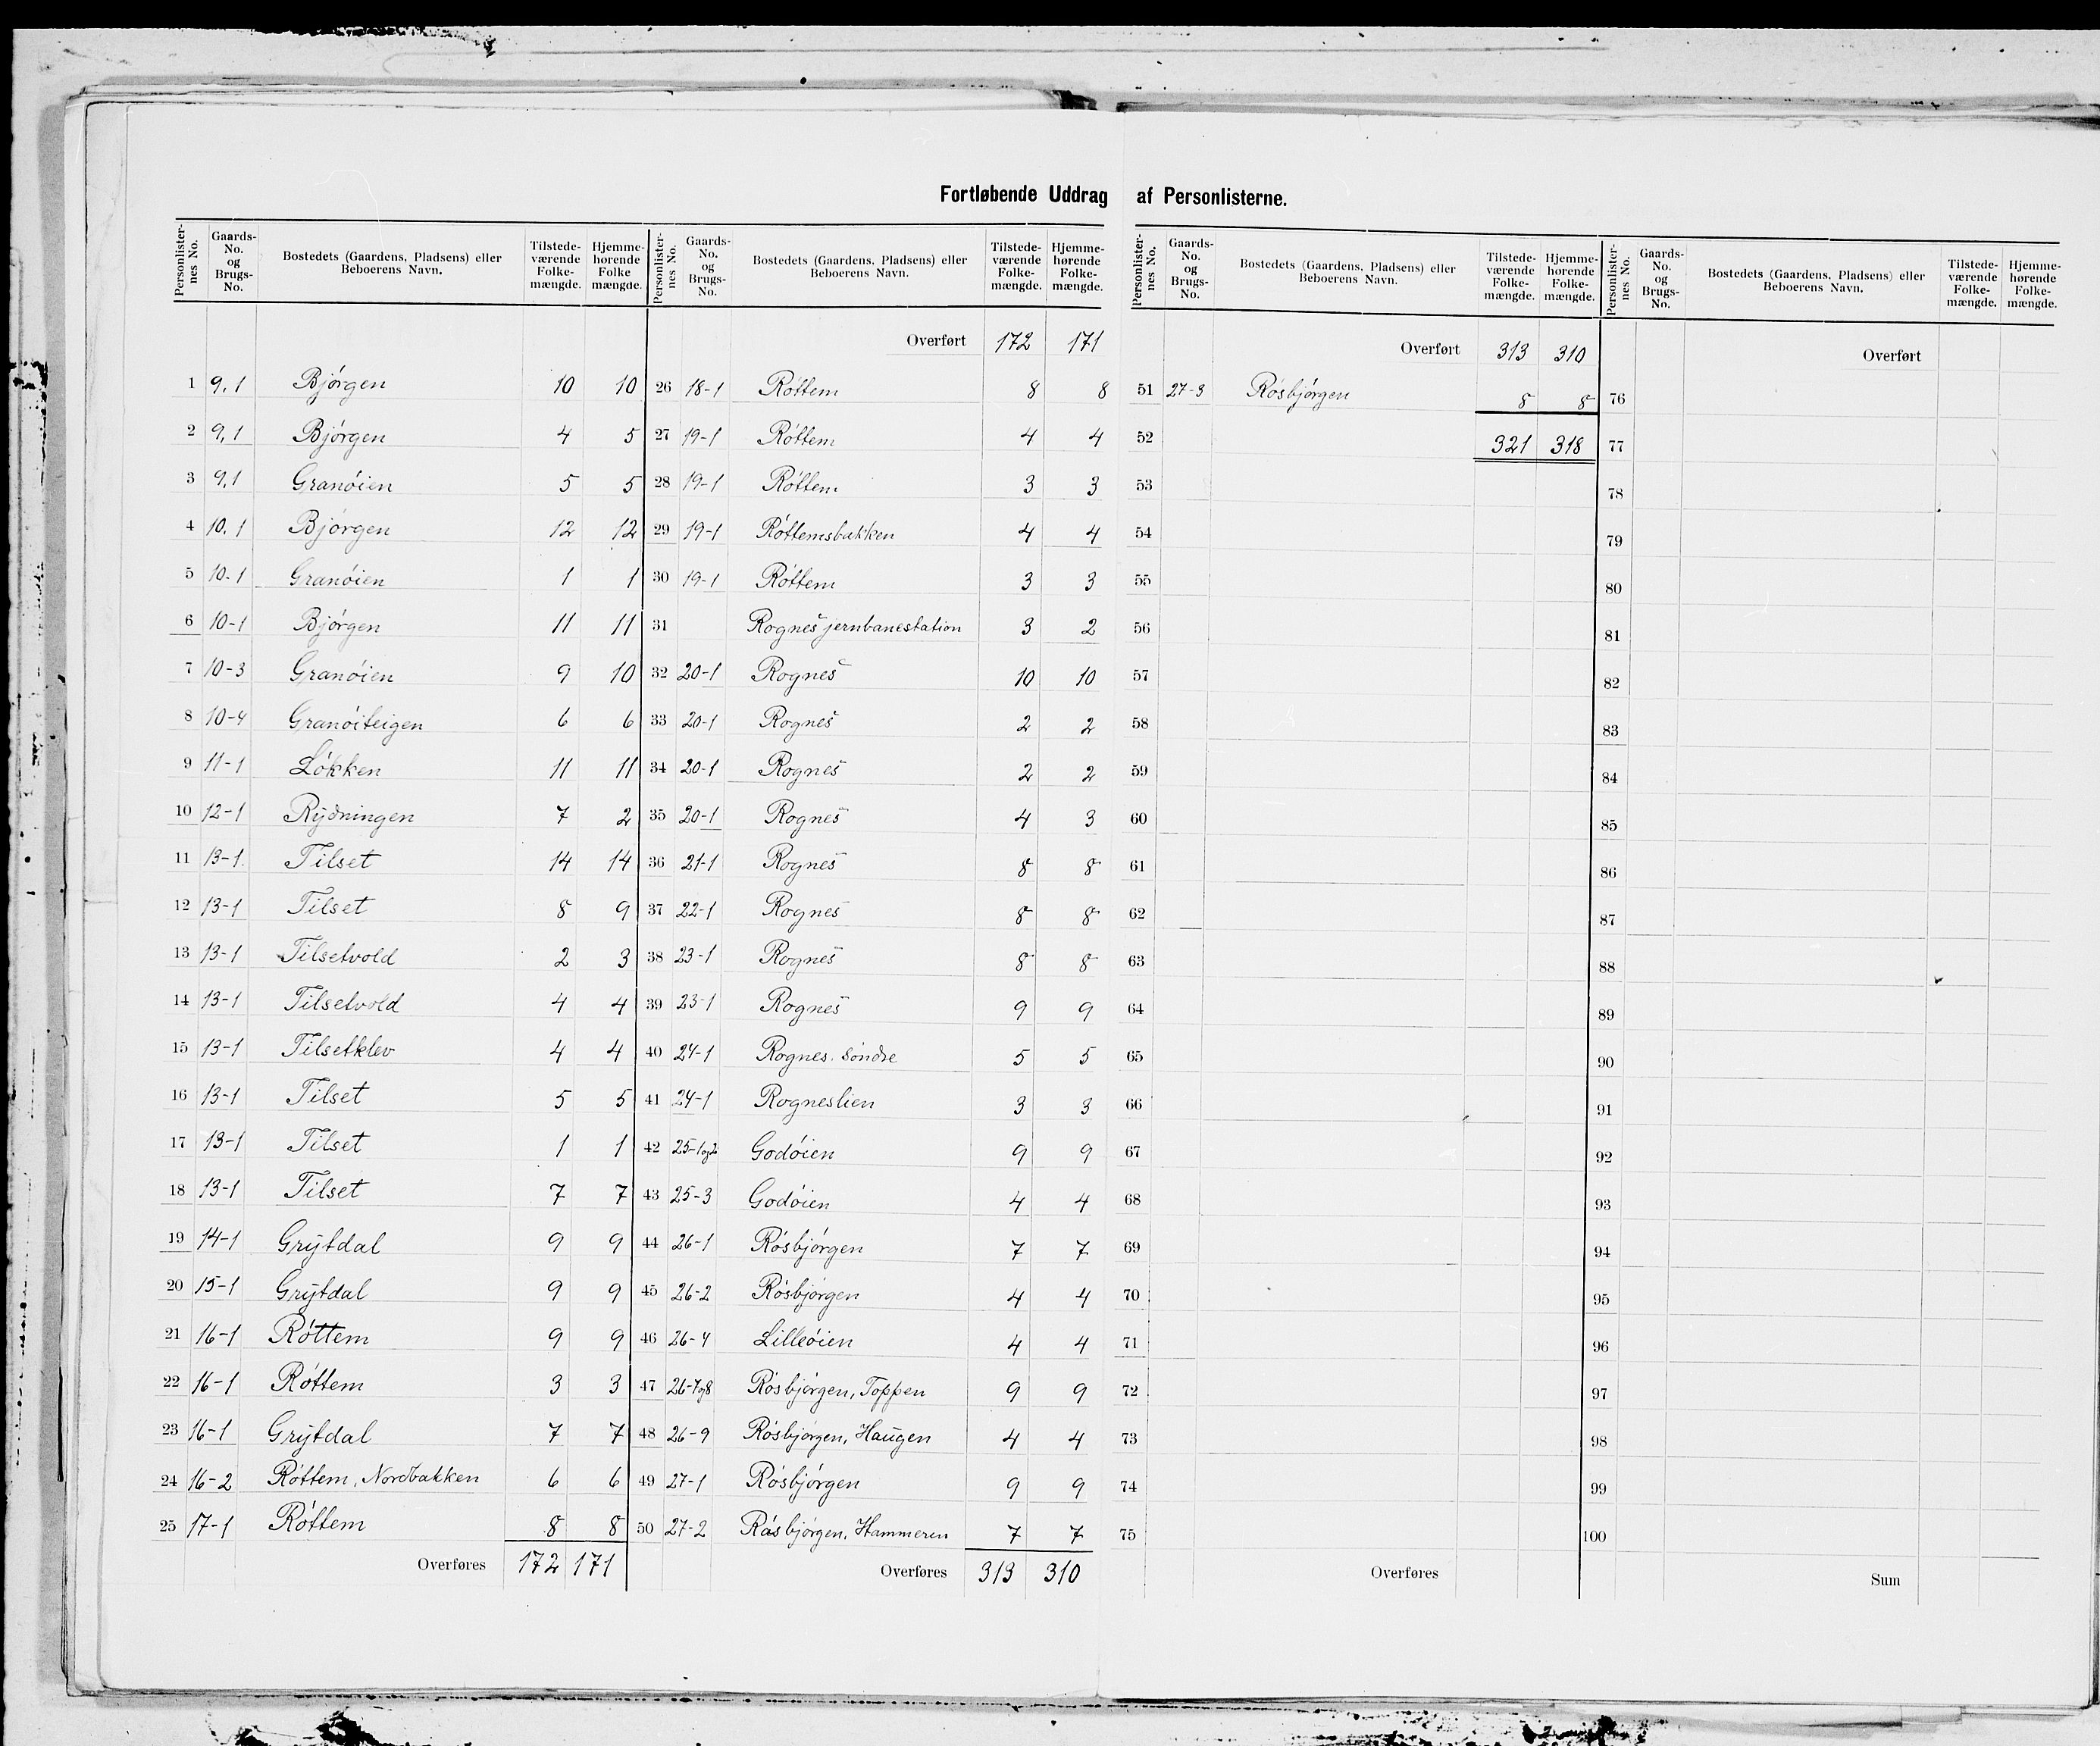 Fortløbende Uddrag af Personlisterne.
Personlisternes No. | Gaards-No. og Brugs-No. | Bostedets (Gaardens, Pladsens) eller Beboerens Navn. | Tilstedeværende Folkemængde. | Hjemmehørende Folkemængde.
1 9,1 Bjórgen 10 10
2 9,1 Bjórgen 4 5
3 9,1 Granóien 5 5
4 10.1 Bjórgen 12 12
5 10-1 Granóien 1 1
6 10-1 Bjórgen 11 11
7 10-3 Granóien 9 10
8 10-4 Granóiteigen 6 6
9 11-1 Lókken 11 11
10 12-1 Rydningen 7 2
11 13-1. Tilset 14 14
12 13-1 Tilset 8 9
13 13-1 Tilsetvold 2 3
14 13-1 Tilsetvold 4 4
15 13-1 Tilsetklev 4 4
16 13-1 Tilset 5 5
17 13-1 Tilset 1 1
18 13-1 Tilset 7 7
19 14-1 Grytdal 9 9
20 15-1 Grytdal 9 9
21 16-1 Róttem 9 9
22 16-1 Róttem 3 3
23 16-1 Grytdal 7 7
24 16-2 Róttem, Nordbakken 6 6
25 17-1 Róttem 8 8
Overføres 172 171
Personlisternes No. | Gaards-No. og Brugs-No. | Bostedets (Gaardens, Pladsens) eller Beboerens Navn. | Tilstedeværende Folkemængde. | Hjemmehørende Folkemængde.
Overført 172 171
26 18-1 Róttem 8 8
27 19-1 Róttem 4 4
28 19-1 Róttem 3 3
29 19-1 Róttemsbakken 4 4
30 19-1 Róttem 3 3
31 Rognes jernbanestation 3 2
32 20-1 Rognes 10 10
33 20-1 Rognes 2 2
34 20-1 Rognes 2 2
35 20-1 Rognes 4 3
36 21-1 Rognes 8 8
37 22-1 Rognes 8 8
38 23-1 Rognes 8 8
39 23-1 Rognes 9 9
40 24-1 Rognes. söndre 5 5
41 24-1 Rogneslien 3 3
42 25-1og2 Godóien 9 9
43 25-3 Godóien 4 4
44 26-1 Rósbjórgen 7 7
45 26-2 Rósbjórgen 4 4
46 26-4 Lilleóien 4 4
47 26-7og8 Rósbjórgen, Toppen 9 9
48 26-9 Rósbjórgen, Haugen 4 4
49 27-1 Rósbjórgen 9 9
50 27-2 Rósbjórgen, Hammeren 7 7
Overføres 313 310
Personlisternes No. | Gaards-No. og Brugs-No. | Bostedets (Gaardens, Pladsens) eller Beboerens Navn. | Tilstedeværende Folkemængde. | Hjemmehørende Folkemængde.
Overført 313 310
51 27-3 Rósbjórgen 8 8
52 321 318
53
54
55
56
57
58
59
60
61
62
63
64
65
66
67
68
69
70
71
72
73
74
75
Overføres
Personlisternes No. | Gaards-No. og Brugs-No. | Bostedets (Gaardens, Pladsens) eller Beboerens Navn. | Tilstedeværende Folkemængde. | Hjemmehørende Folkemængde.
Overført
76
77
78
79
80
81
82
83
84
85
86
87
88
89
90
91
92
93
94
95
96
97
98
99
100
Sum